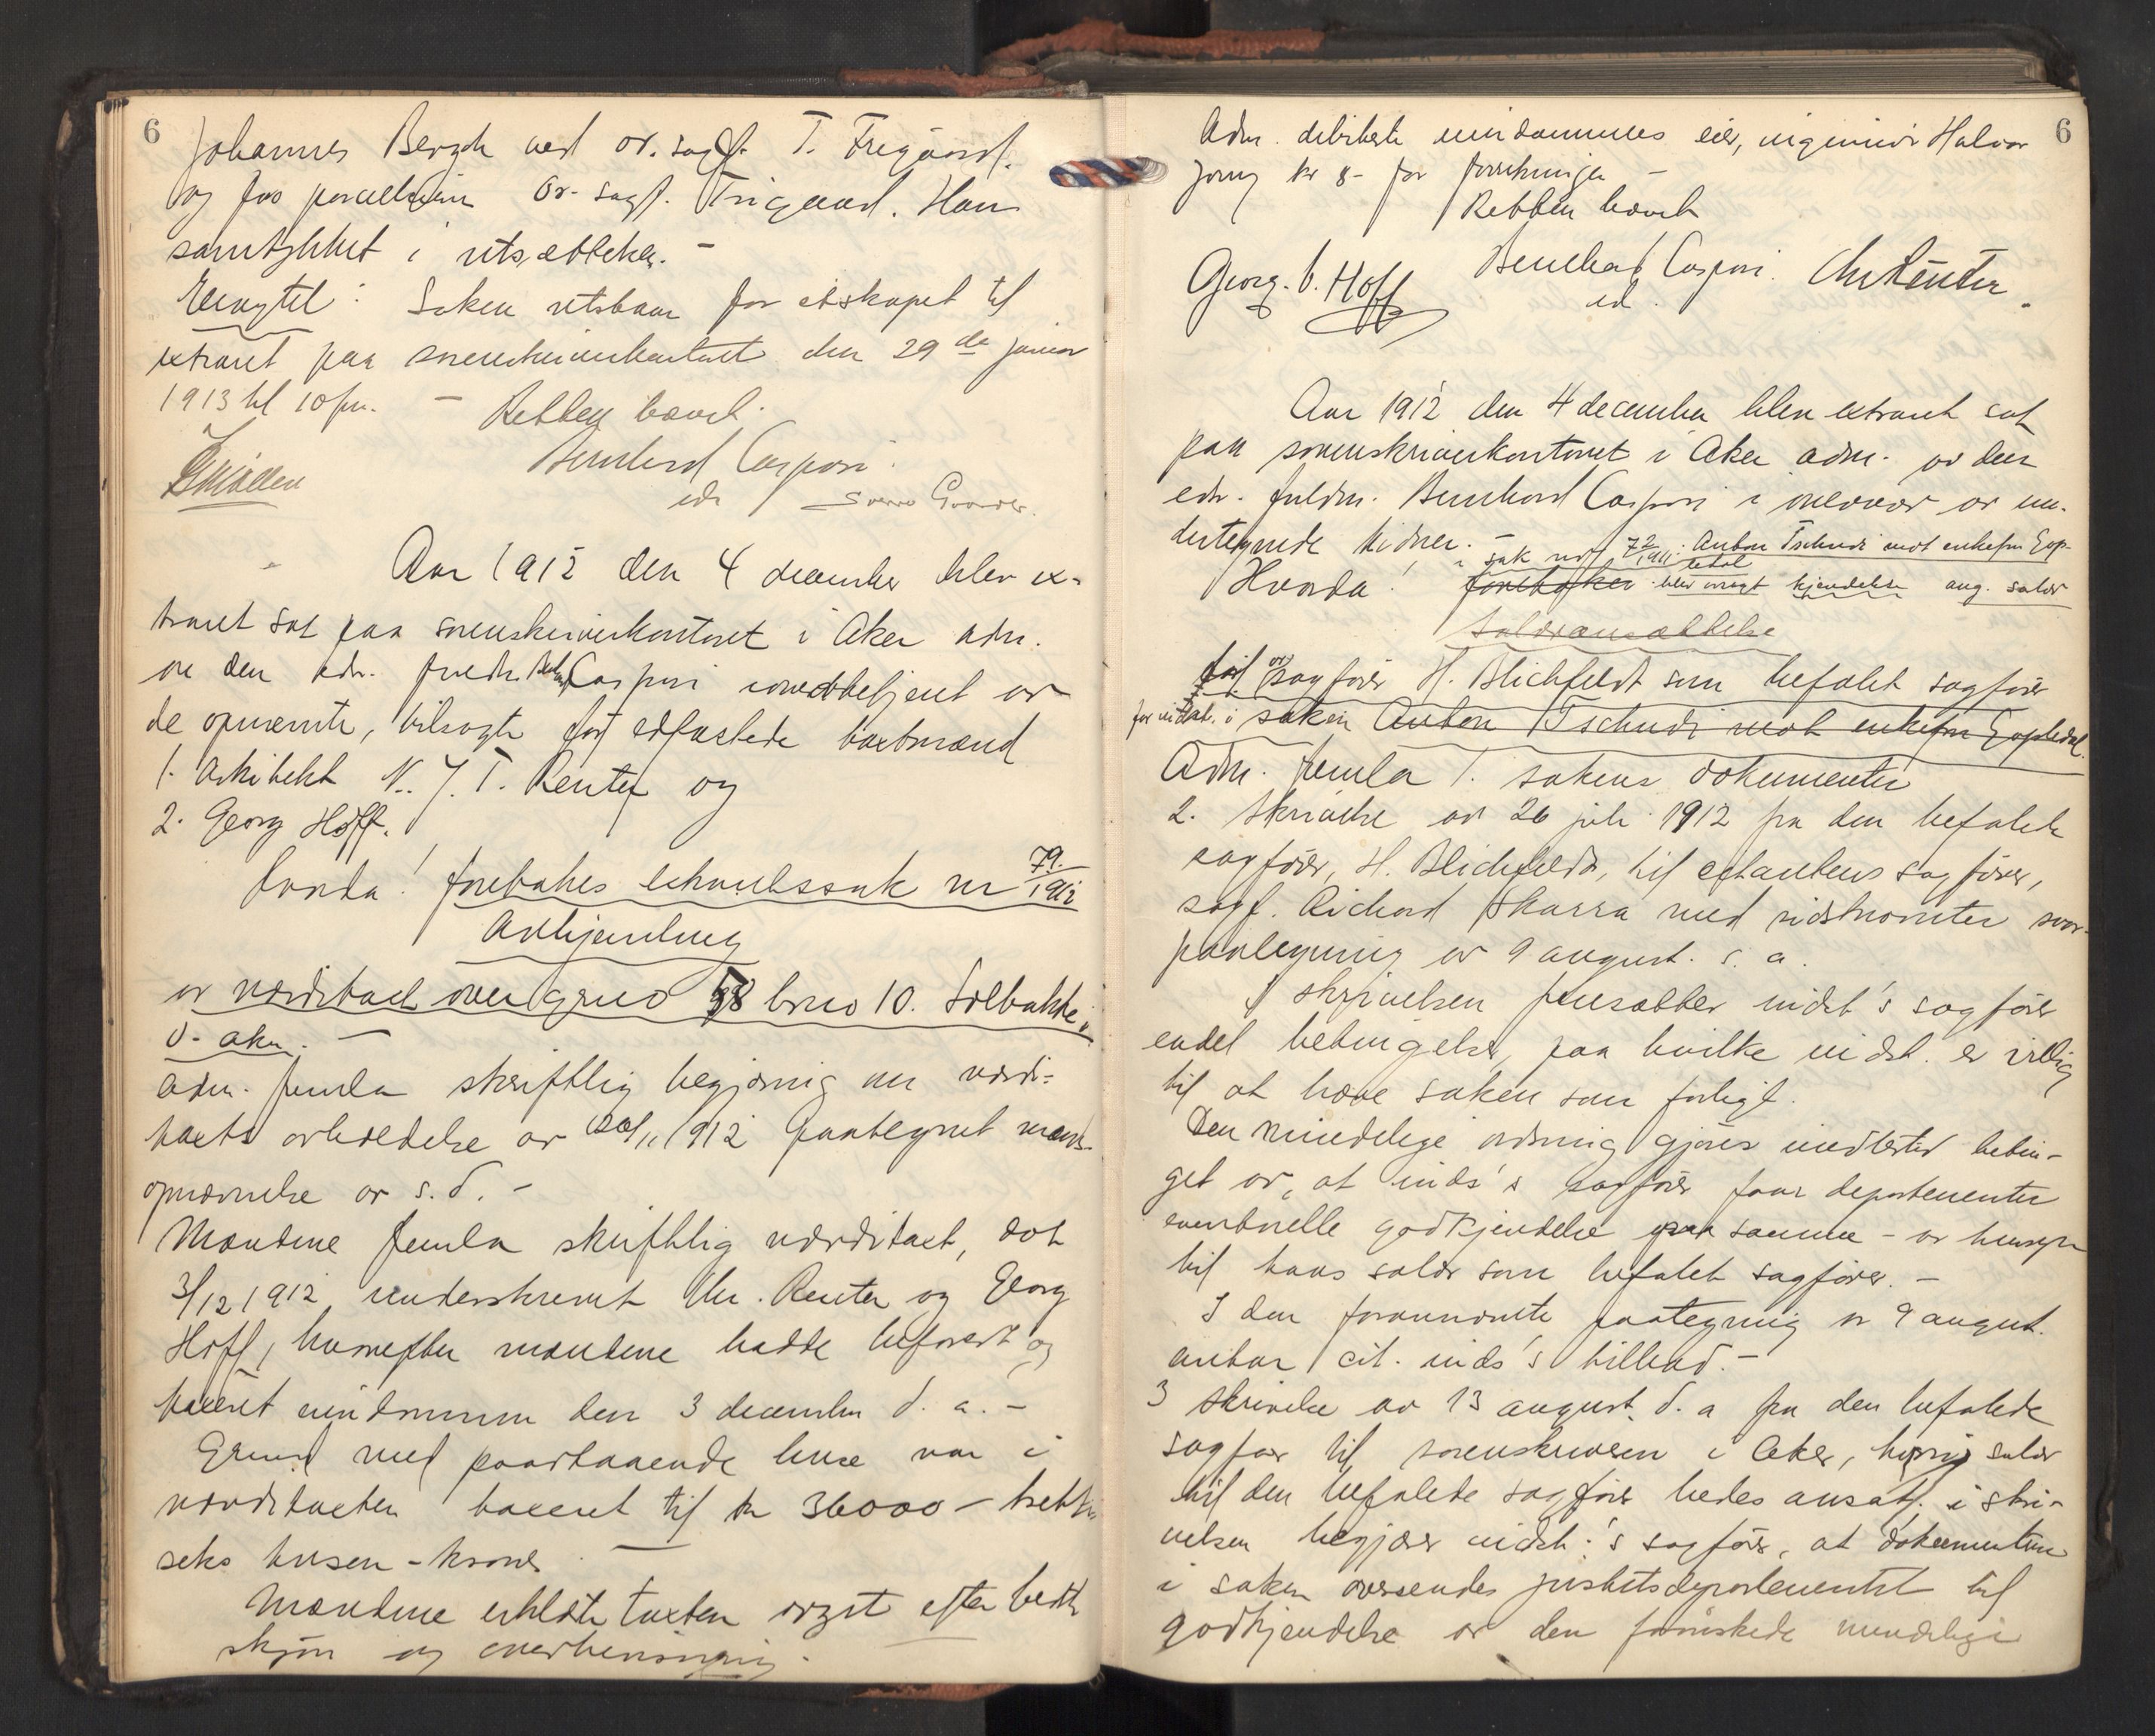 6
Johannes Bergh ved or. sagf. T. Frigaard.
og for Or. sagf. Frigaard. Han
samtykket i utsættelse. –
Eragtet: Saken utstaar for etskapet til
extraret paa sorenskriverkontoret den 29de januar
1913 kl 10 fm. –
Retten hævet.
Bernhard Caspari
edv
Aar 1912 den 4 december blev ex-
traret sat paa sorenskriverkontoret i Aker adm.
av den edv. fuldm Caspari medbetjent av
de opnævnte, tilsagte og edfæstede taxtmænd
1. Arkitekt N. J. T. Reuter og
2. Georg Hoff.
Hvorda! foretokes extraretssak nr 79/1912
Avhjemling
av værditaxt over gno 58 brno 10. Solbakken
V. aker. –
Adm. fremla skriftlig begjæring om værdi-
taxts avholdelse av 20/11 1912 paategnet mands-
opnævnelse av s. d. –
Mændene fremla skriftlig værditaxt, dat
3/12 1912 underskrevet Chr. Reuter og Georg
Hoff, hvorefter mændene hadde befaret og
taxeret eiendommen den 3 december d. a. –
Grund med paastaaende huse var i
værditaxten taxeret til kr 36000 – tretti
seks tusen – kroner
Mændene erklærte taxten avgit efter bedste
skjøn og overbevisning.
6
Adm. debiterte eiendommens eier, ingeniør Halvor
kr 8- for forretningen –
Retten hævet
Georg. V. Hoff Bernhard Caspari. Chr Reuter.
ed.
Aar 1912 den 4 december blev extraret sat
paa sorenskriverkontoret i Aker adm. av den
edv. fuldm. Bernhard Caspari i overvær av un-
dertegnede vidner. –
i sak nr 72/1911: Anton Tschudi mot enkefru Gop-
ledal
Hvorda! foretokes blev avsagt kjendelse ang. salær
Salæransættelse
til or sagfører H. Blichfeldt som befalet sagfører
for indst. i saken Anton Tschudi mot enkefru Gopledal.
Adm. fremla 1. sakens dokumenter
2. Skrivelse av 26 juli 1912 fra den befalede
sagfører, H. Blichfeldt, til citantens sagfører,
sagf. Richard Skarra med sidstnævntes svar-
paategning av 9 august. s. a.
I skrivelsen fremsætter indst's sagfører
endel betingelser, paa hvilke indst. er villig
til at hæve saken som forligt.
Den mindelige ordning gjøres imidlertid betin-
get av, at inds's sagfører faar departementets
eventuelle godkjendelse paa samme – av hensyn
til hans salær som befalet sagfører. –
I den forannævnte paategning av 9 august.
antar cit. inds's tilbud. –
3 Skrivelse av 13 august. d. a fra den befalede
sagfør til sorenskriveren i Aker, hvori salær
til den befalede sagfører bedes ansat. i skri-
velsen begjærer indst:'s sagfører, at dokumenterne
i saken oversendes justitsdepartementet til
godkjendelse av den forønskede mindelige